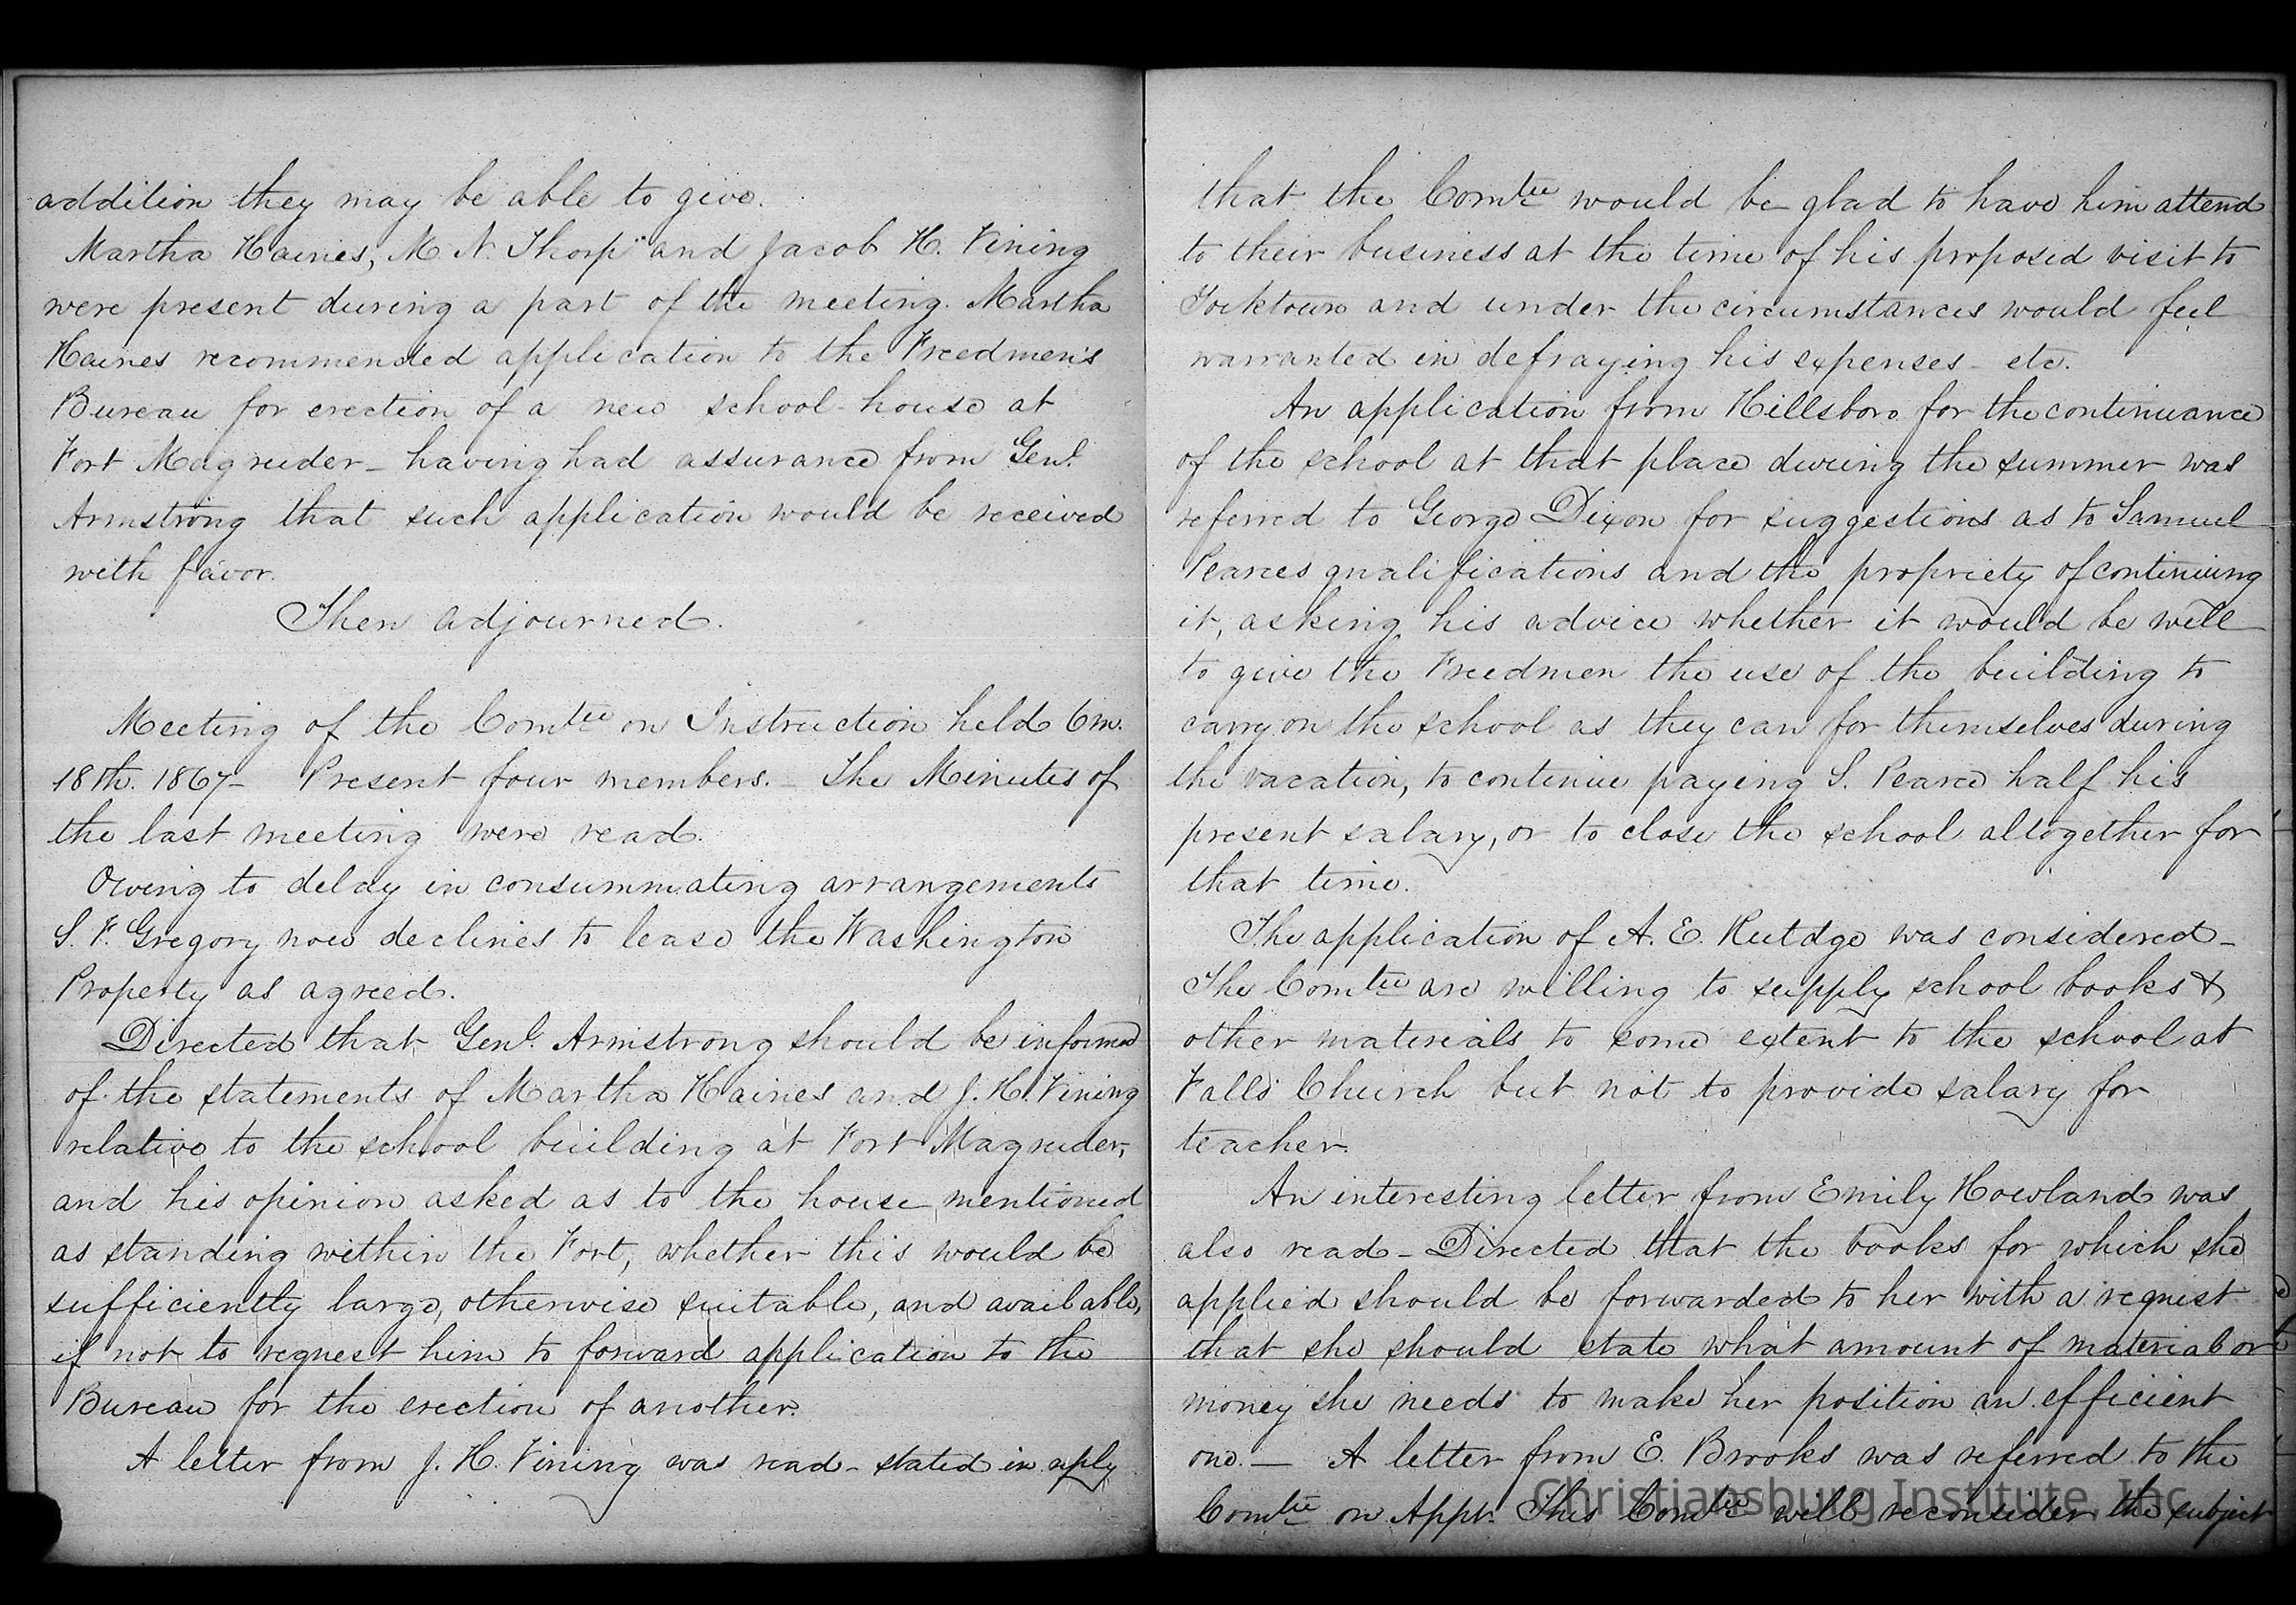 addition they may be able to give.
Martha Haines, M. N. Thorp and Jacob H. Vining
were present during a part of the meeting. Martha
Haines recommended application to the Freedmen's
Bureau for erection of a new school-house at
Fort Magruder - having had assurance from Genl.
Armstrong that such application would be received
with favor.
Then adjourned.
Meeting of the Comtee on Instruction held 6m.
18th. 1867- Present four members. - The Minutes of
the last meeting were read.
Owing to delay in consummating arrangements
S. F. Gregory now declines to lease the Washington
Property as agreed.
Directed that Genl. Armstrong should be informed
of the statements of Martha Haines and J. H. Vining
relative to the school building at Fort Magruder,
and his opinion asked as to the house mentioned
as standing within the Fort, whether this would be
sufficiently large, otherwise suitable, and available,
if not to request him to forward application to the
Bureau for the erection of another.
A letter from J. H. Vining was read - stated in reply
that the Comtee would be glad to have him attend
to their business at the time of his proposed visit to
Yorktown and under the circumstances would feel
warranted in defraying his expenses - etc.
An application from Hillsboro for the continuance
of the school at that place during the summer was
referred to George Dixon for suggestions as to Samuel
Pearces qualifications and the propriety of continuing
it, asking his advice whether it would be well
to give the Freedmen the use of the building to
carry on the school as they can for themselves during
the vacation, to continue paying S. Pearce half his
present salary, or to close the school altogether for
that time.
The application of A. E. Rutdge was considered -
The Comtee are willing to supply school books &
other materials to some extent to the school at
Falls Church but not to provide salary for
teacher.
An interesting letter from Emily Howland was
also read - Directed that the books for which she
applied should be forwarded to her with a request
that she should state what amount of material or
money she needs to make her position an efficient
one. - A letter from E. Brooks was referred to the
Comtee on Appt. This Comtee will reconsider the subject
Christiansburg Institute, Inc.